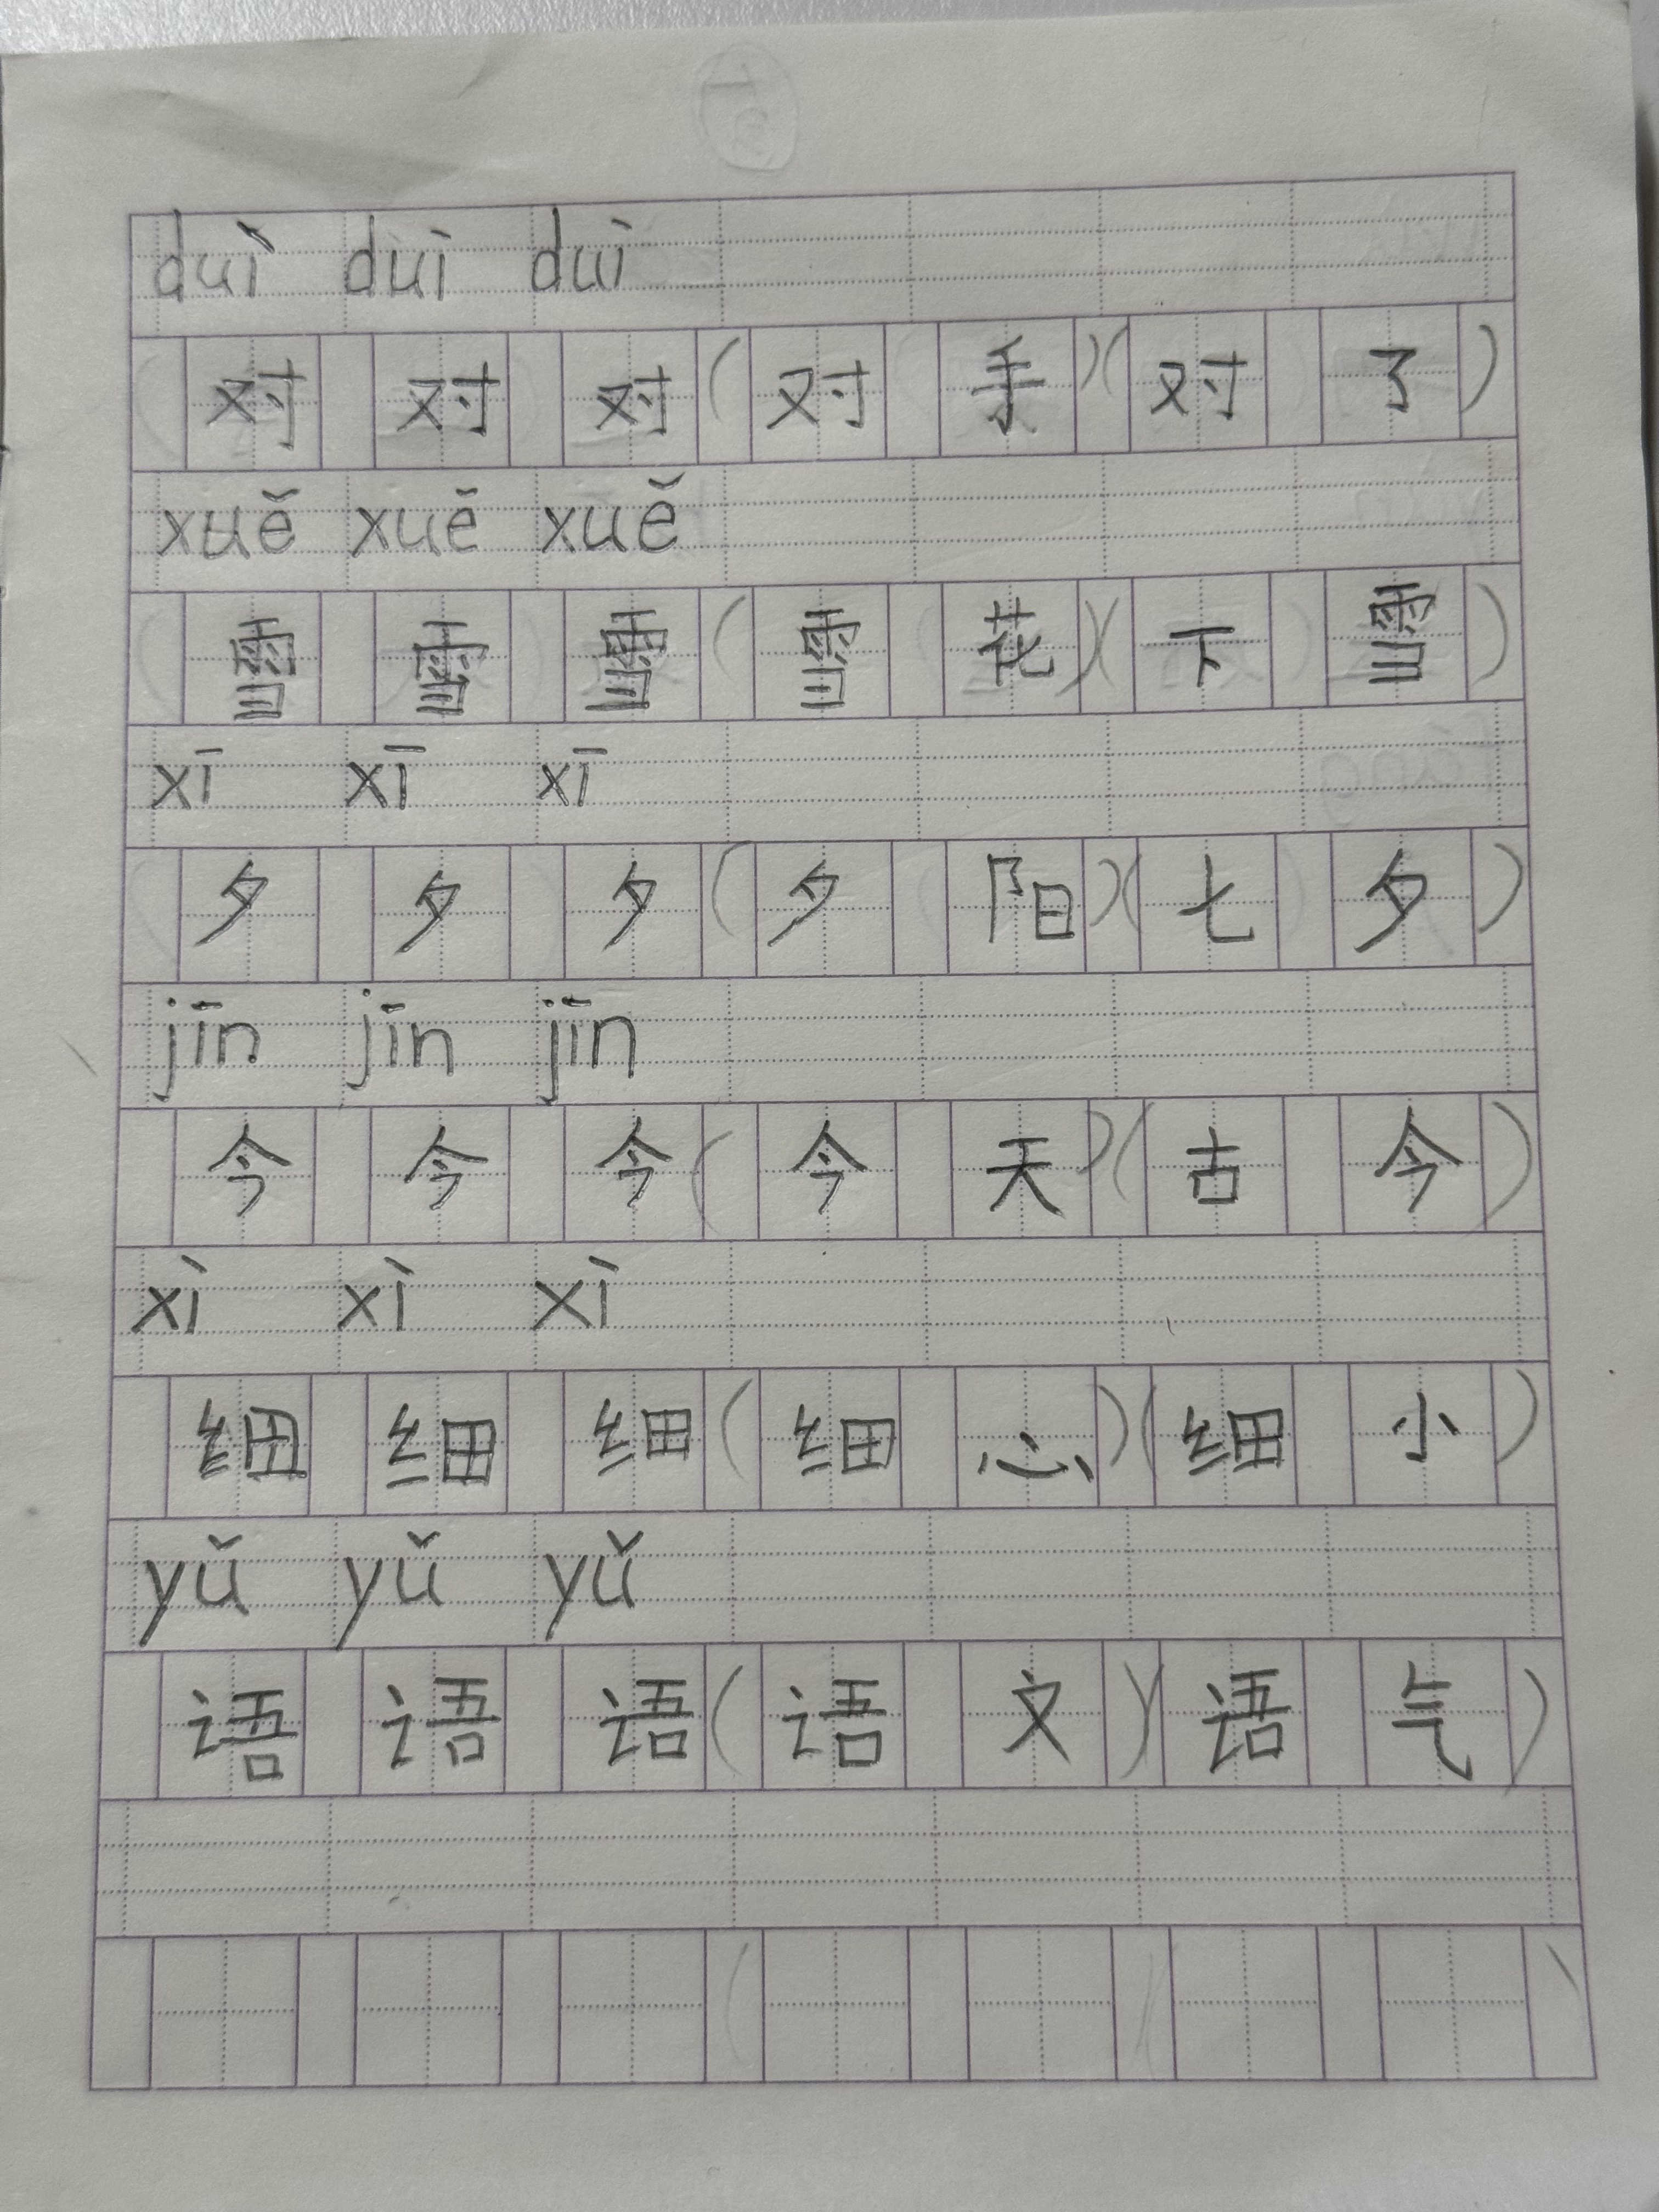 duì duì duì
对 对 对 (对 手)(对 了)
xuě xuě xuě
雪 雪 雪 (雪 花)(下 雪)
xī xī xī
夕 夕 夕 (夕 阳)(七 夕)
jīn jīn jīn
今 今 今 (今 天)(古 今)
xì xì xì
细 细 细 (细 心)(细 小)
yǔ yǔ yǔ
语 语 语 (语 文)(语 气)